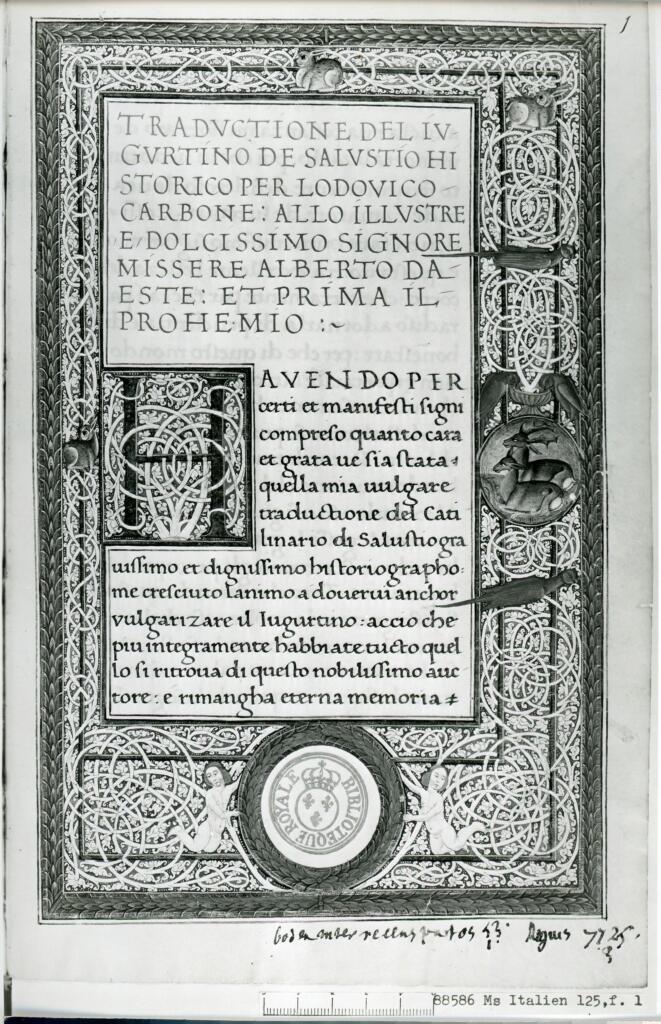 1
TRADVCTIONE DEL IV-
GVRTINO DE SALVSTIO HI
STORICO PER LODOVICO
CARBONE: ALLO ILLVSTRE
E/DOLCISSIMO SIGNORE
MISSERE ALBERTO DA
ESTE: ET PRIMA IL
PROHEMIO :~
HAVENDO PER
certi et manifesti signi
compreso quanto cara
et grata ue sia stata
quella mia uulgare
traductione del Cati
linario di Salustio gra
uissimo et dignissimo historiographo:
me cresciuto lanimo a douerui anchor
vulgarizare il Iugurtino: accio che
piu integramente habbiate tucto quel
lo si ritroua di questo nobilissimo auc
tore: e rimangha eterna memoria
BIBLIOTEQUE ROYALE
Regius 7725.
3
88586 Ms Italien 125,f. 1